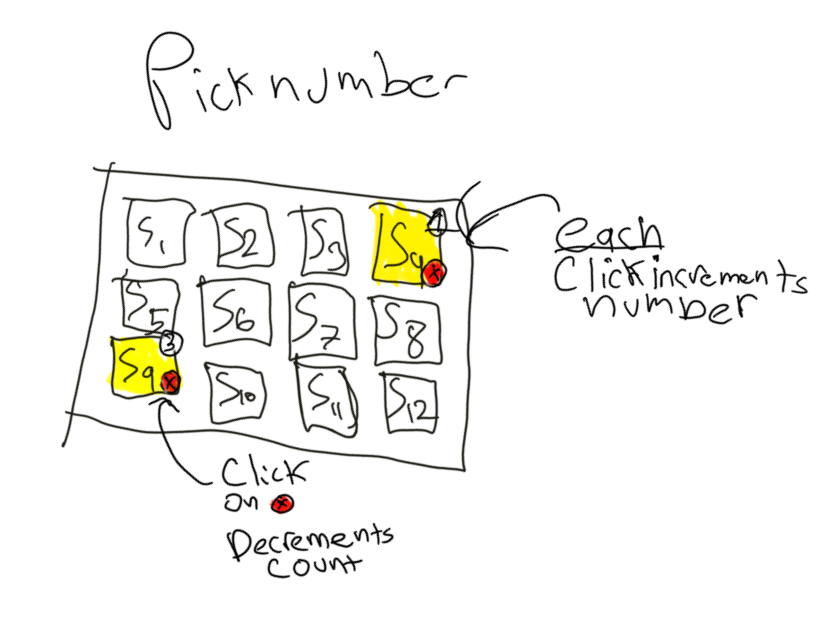 Pick number
S1 S2 S3 S4 1
x
S5 S6 S7 S8
3
S9 x S10 S11 S12
each
Click increments
number
Click
on x
Decrements
count